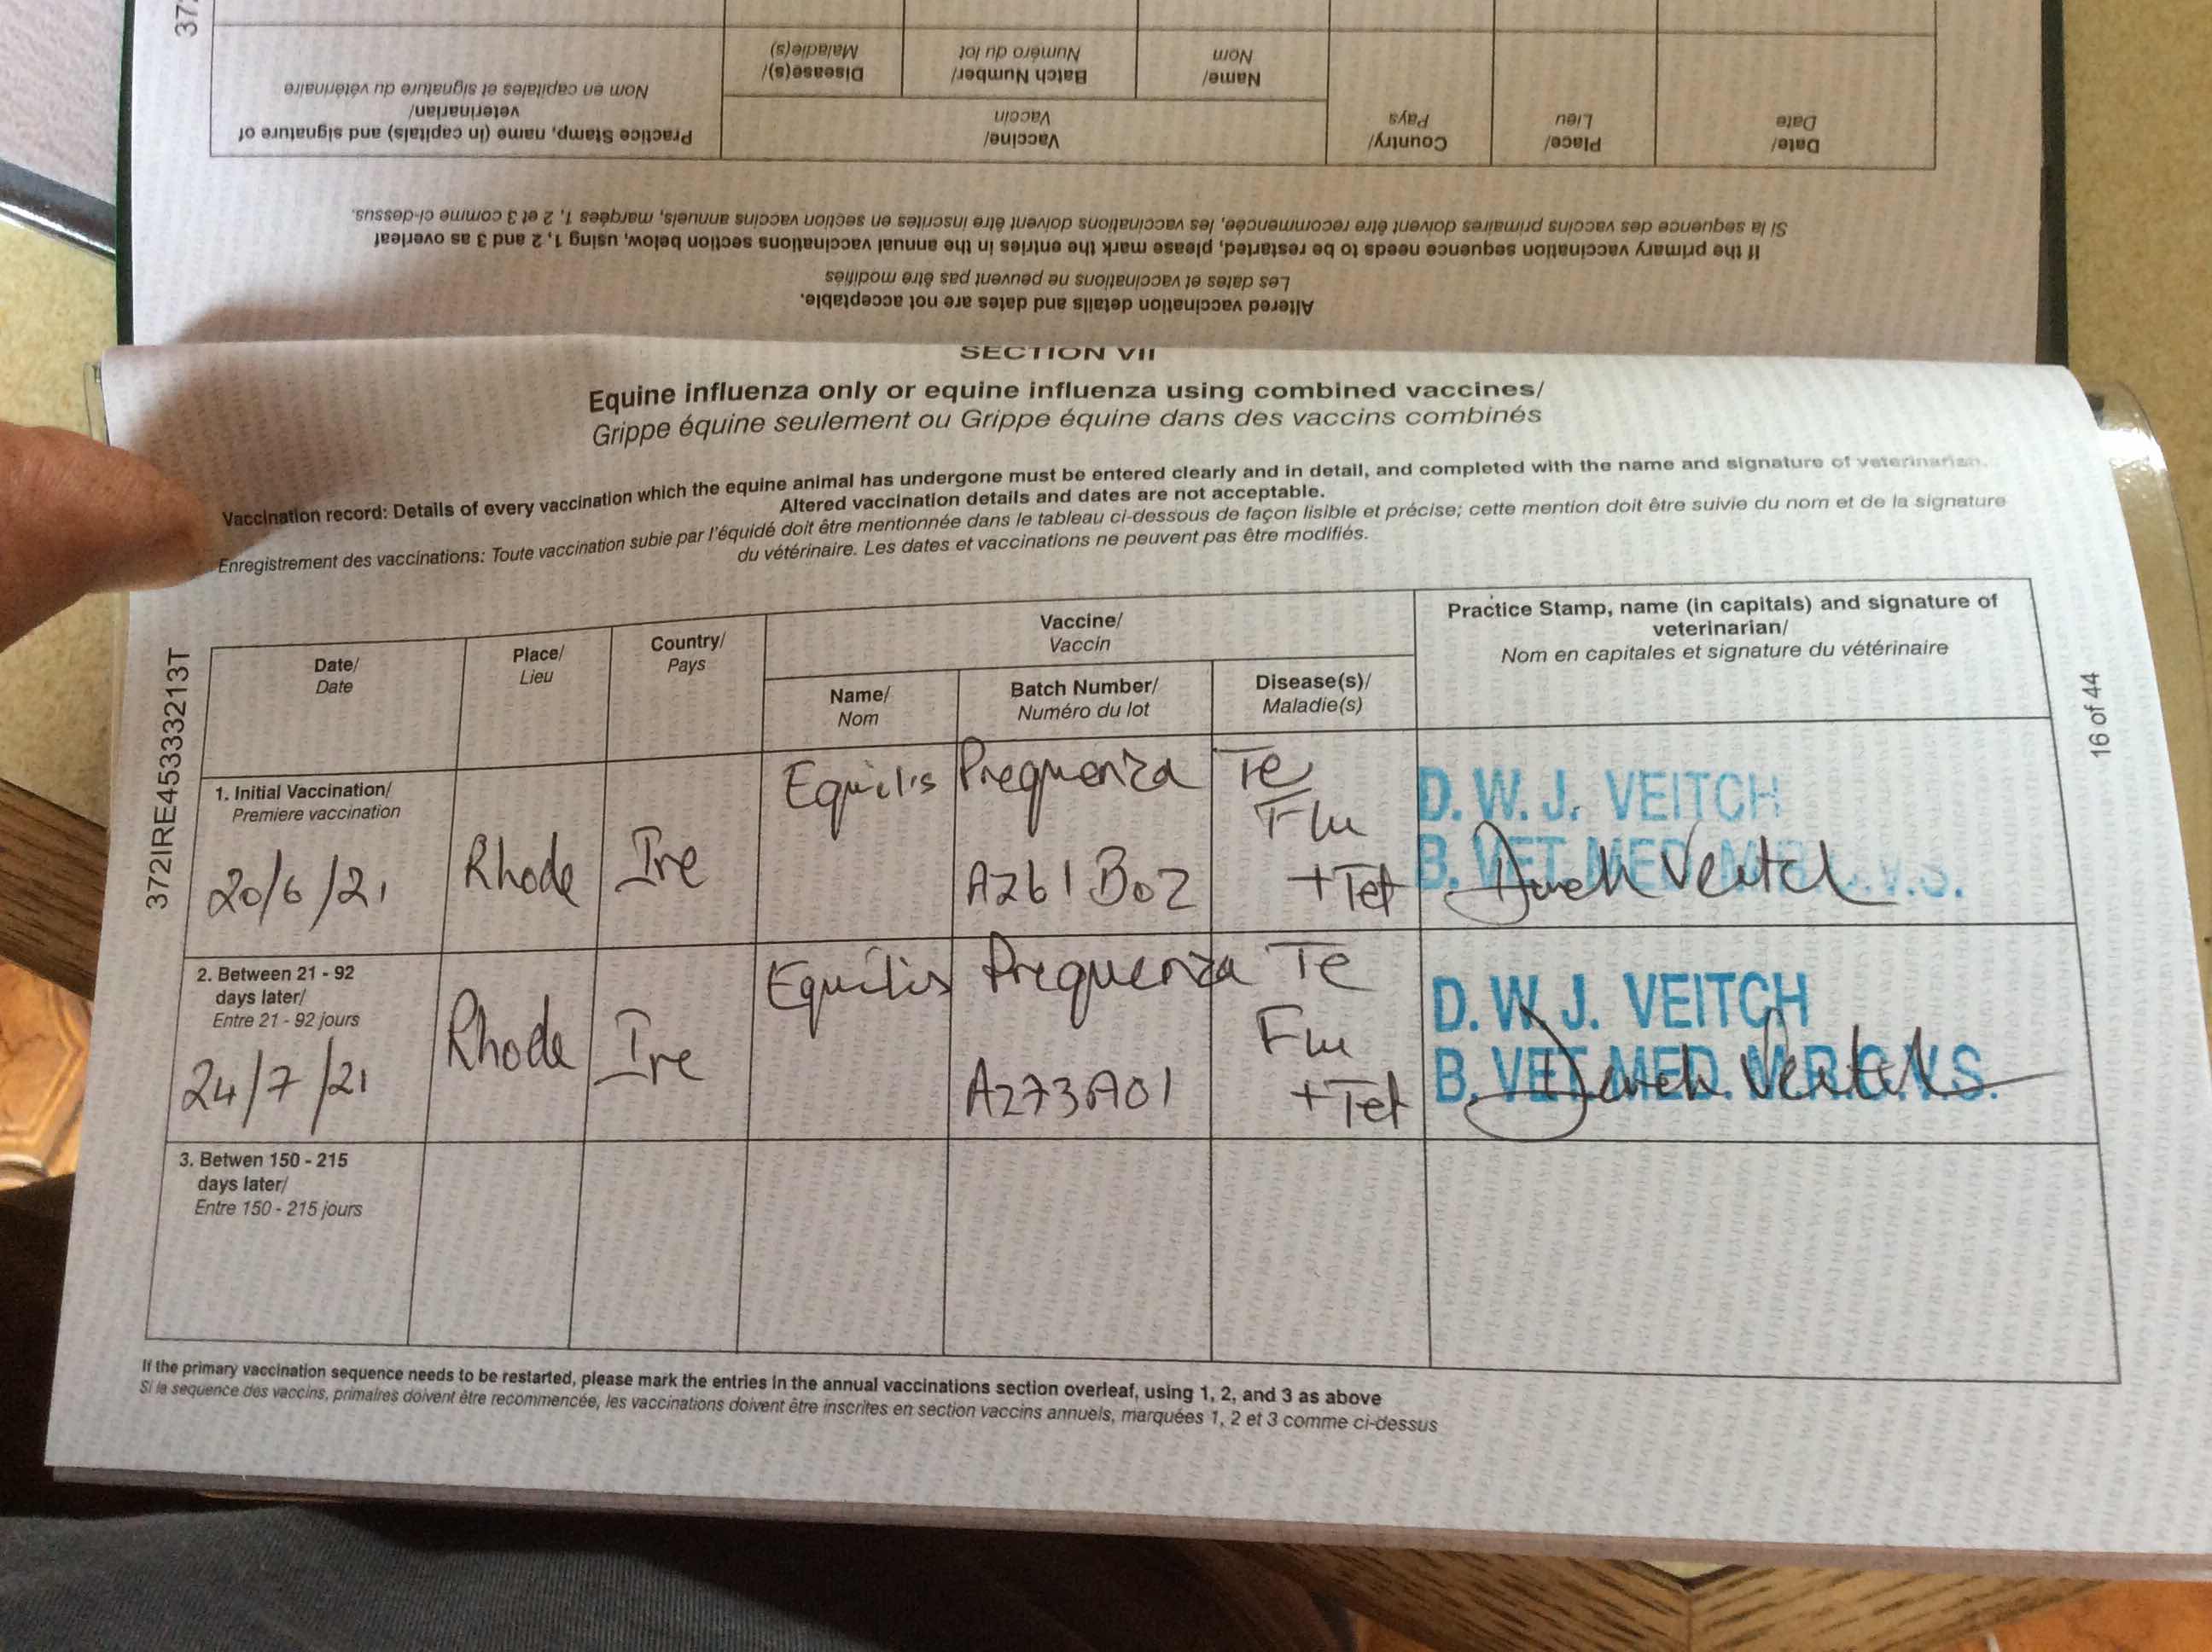 37
Practice Stamp, name (in capitals) and signature of
veterinarian/
Nom en capitales et signature du vétérinaire
Disease(s)/
Maladie(s)
Batch Number/
Numéro du lot
Name/
Nom
Vaccine/
Vaccin
Country/
Pays
Place/
Lieu
Date/
Date
If the primary vaccination sequence needs to be restarted, please mark the entries in the annual vaccinations section below, using 1, 2 and 3 as overleaf
Si la sequence des vaccins primaires doivent être recommencée, les vaccinations doivent être inscrites en section vaccins annuels, marquées 1, 2 et 3 comme ci-dessus.
Altered vaccination details and dates are not acceptable.
Les dates et vaccinations ne peuvent pas être modifiés
SECTION VII
Equine influenza only or equine influenza using combined vaccines/
Grippe équine seulement ou Grippe équine dans des vaccins combinés
Vaccination record: Details of every vaccination which the equine animal has undergone must be entered clearly and in detail, and completed with the name and signature of veterinarian.
Altered vaccination details and dates are not acceptable.
Enregistrement des vaccinations: Toute vaccination subie par l'équidé doit être mentionnée dans le tableau ci-dessous de façon lisible et précise; cette mention doit être suivie du nom et de la signature
du vétérinaire. Les dates et vaccinations ne peuvent pas être modifiés.
372IRE45333213T
16 of 44
Date/
Date
Place/
Lieu
Country/
Pays
Vaccine/
Vaccin
Name/
Nom
Batch Number/
Numéro du lot
Disease(s)/
Maladie(s)
Practice Stamp, name (in capitals) and signature of
veterinarian/
Nom en capitales et signature du vétérinaire
1. Initial Vaccination/
Premiere vaccination
20/6/21
Rhode
Ire
Equilis Prequenza Te
A261B02
Flu
+Tet
D. W. J. VEITCH
B. VET. MED. M.R.C.V.S.
2. Between 21 - 92
days later/
Entre 21 - 92 jours
24/7/21
Rhode
Ire
Equilis Prequenza Te
A273A01
Flu
+Tet
D. W. J. VEITCH
B. VET. MED. M.R.C.V.S.
3. Betwen 150 - 215
days later/
Entre 150 - 215 jours
If the primary vaccination sequence needs to be restarted, please mark the entries in the annual vaccinations section overleaf, using 1, 2, and 3 as above
Si la sequence des vaccins, primaires doivent être recommencée, les vaccinations doivent être inscrites en section vaccins annuels, marquées 1, 2 et 3 comme ci-dessus